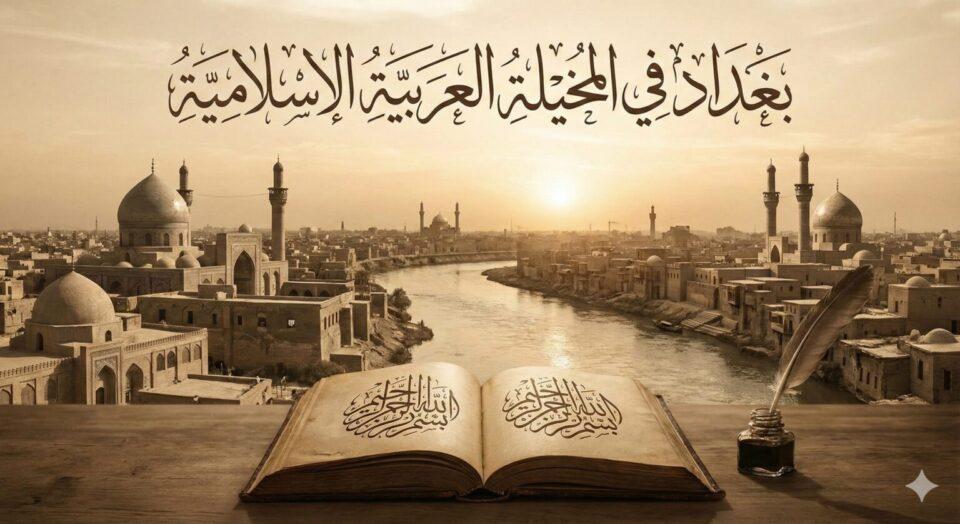 بَغْدَاد فِي المُخَيِّلَةِ العَرَبِيَّةِ الإِسْلَامِيَّةِ
بسم الله الرحمن الرحيم
بسم الله الرحمن الرحيم